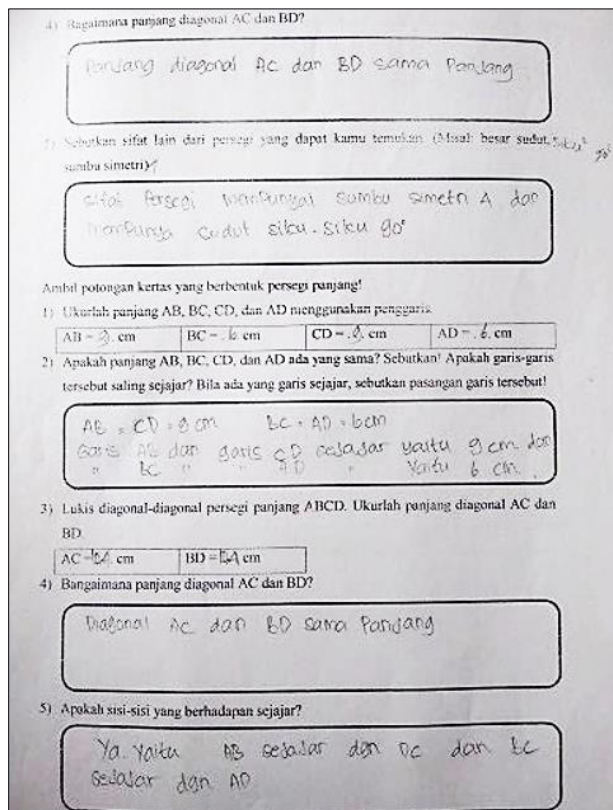 4) Bagaimana panjang diagonal AC dan BD?
Panjang diagonal AC dan BD sama Panjang
Sebutkan sifat lain dari persegi yang dapat kamu temukan. (Misal: besar sudut,
sumbu simetri)
sifat Persegi mempunyai sumbu simetri 4 dan
mempunya sudut siku-siku 90°
Ambil potongan kertas yang berbentuk persegi panjang!
1) Ukurlah panjang AB, BC, CD, dan AD menggunakan penggaris.
AB = 9. cm BC = . 6 cm CD = .9. cm AD = . 6. cm
2) Apakah panjang AB, BC, CD, dan AD ada yang sama? Sebutkan! Apakah garis-garis
tersebut saling sejajar? Bila ada yang garis sejajar, sebutkan pasangan garis tersebut!
AB = CD = 9 cm BC = AD = 6 cm
Garis AB dan garis CD sejajar yaitu 9 cm dan
" BC " " AD " Yaitu 6 cm.
3) Lukis diagonal-diagonal persegi panjang ABCD. Ukurlah panjang diagonal AC dan
BD.
AC = cm BD = cm
4) Bangaimana panjang diagonal AC dan BD?
Diagonal AC dan BD sama Panjang
5) Apakah sisi-sisi yang berhadapan sejajar?
Ya. Yaitu AB sejajar dgn DC dan BC
sejajar dgn AD